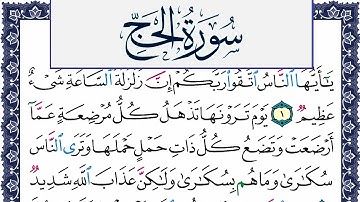 سُورَةُ الحَجِّ
يَٰٓأَيُّهَا ٱلنَّاسُ ٱتَّقُوا۟ رَبَّكُمْ إِنَّ زَلْزَلَةَ ٱلسَّاعَةِ شَىْءٌ
عَظِيمٌ ١ يَوْمَ تَرَوْنَهَا تَذْهَلُ كُلُّ مُرْضِعَةٍ عَمَّآ
أَرْضَعَتْ وَتَضَعُ كُلُّ ذَاتِ حَمْلٍ حَمْلَهَا وَتَرَى ٱلنَّاسَ
سُكَٰرَىٰ وَمَا هُم بِسُكَٰرَىٰ وَلَٰكِنَّ عَذَابَ ٱللَّهِ شَدِيدٌ